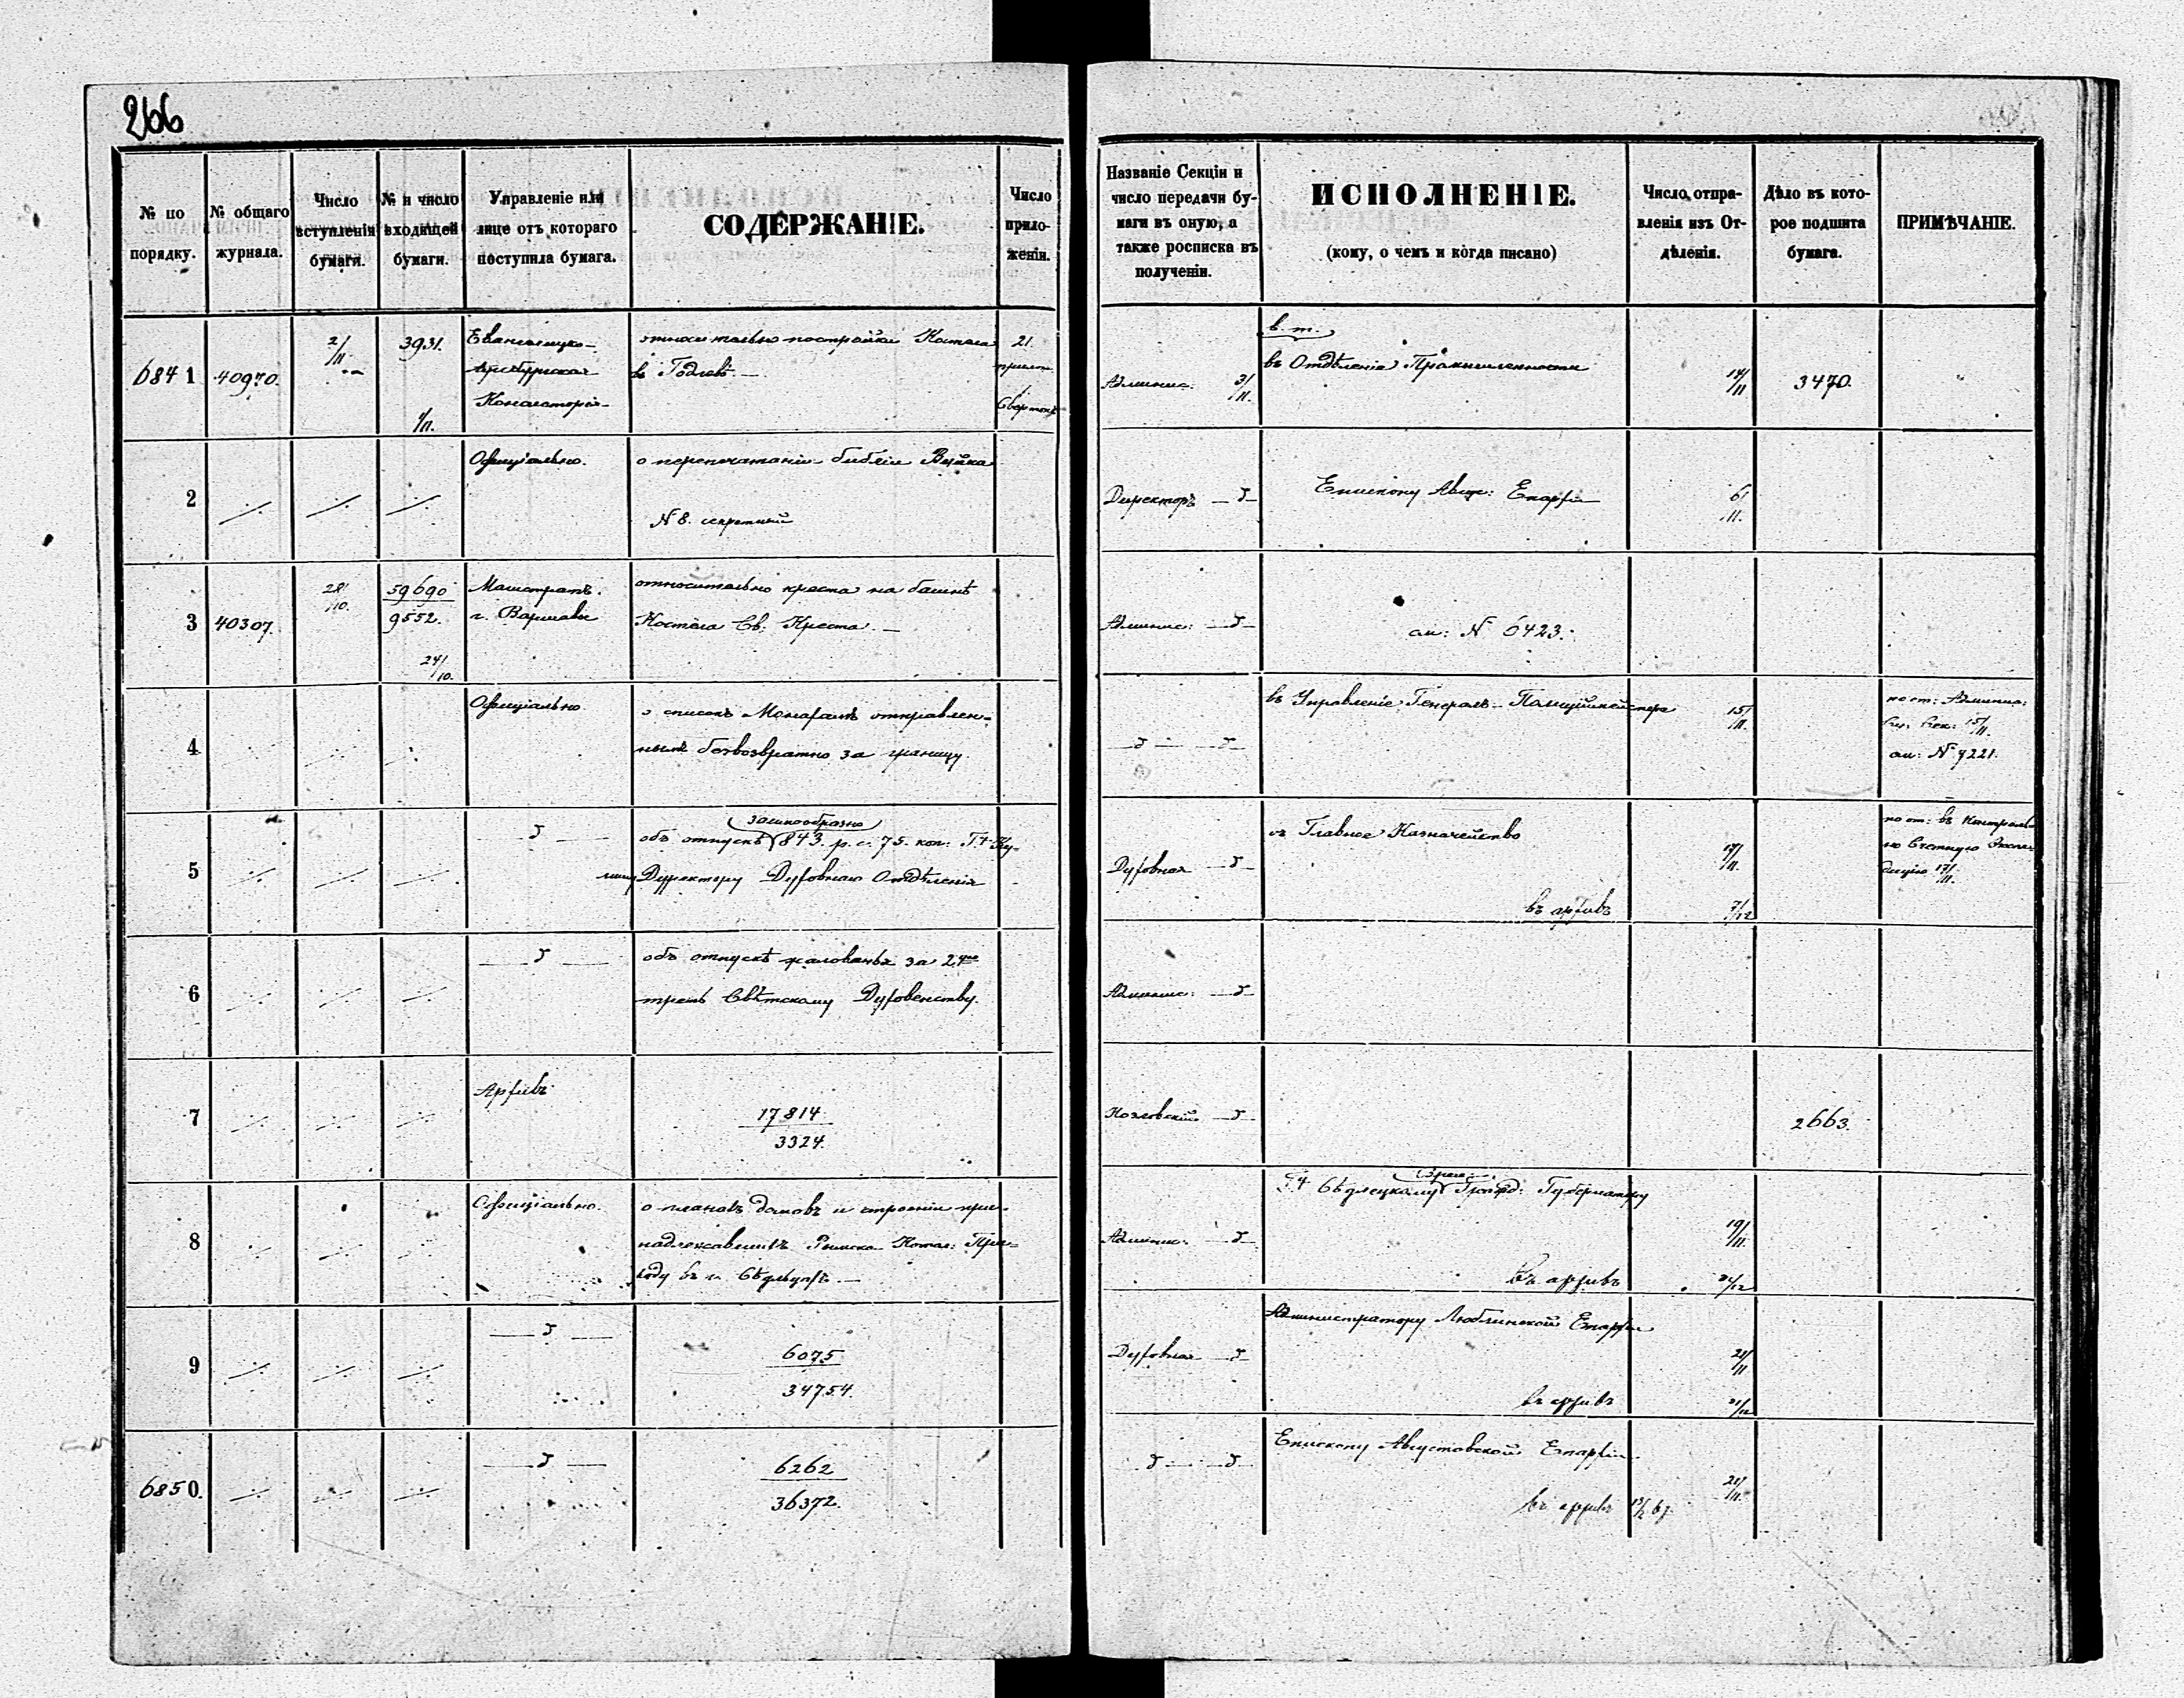 266
№ по порядку.
№ общаго журнала.
Число вступленія бумаги.
№ и число входящей бумаги.
Управленіе или лице отъ котораго поступила бумага.
СОДЕРЖАНІЕ.
Число приложеніи.
Названіе Секціи и число передачи бумаги въ оную, а также росписка въ полученіи.
ИСПОЛНЕНІЕ.
(кому, о чемъ и когда писано)
Число отправленія изъ Отдѣленія.
Дѣло въ которое подшита бумага.
ПРИМѢЧАНІЕ.
6841 40970. 2/11 3931. 1/11.
Евангелицко-
Консисторія
относительно постройки Костела
въ Годлевѣ. —
21.
Админис. 3/11.
в. т.
въ Отдѣленіе Промышленности
14/11 3470.
2
Офиціально.
о перепечатаніи библіи Вуйка
N 8. секретный
Директоръ
Епископу Авгус: Епархіи
6/11.
3 40307. 28/10. 59690
9552. 24/10.
Магистратъ
г. Варшавы
относительно креста на башнѣ
Костела Св. Креста. —
Админис:
ал: N 6423.
4
Офиціально
о списокъ Монаховъ отправлен-
ныхъ безвозвратно за границу.
въ Управленіе Генералъ-Полицiймейстера
15/11.
15/11.
ал: N 7221.
5
заимообразно
объ отпускѣ 843. р. с. 75. коп: Гну Ку-
Директору Духовнаго Отдѣленія
Духовная
въ Главное Казначейство
17/11.
въ архивъ 7/12
по от: въ Контроль-
но Счетную Экспе-
дицію 17/11.
6
объ отпускѣ жалованья за 2ую
треть Свѣтскому Духовенству.
Админис:
7
Архивъ
17814
3324.
Козловскій
2663.
8
Офиціально.
о планахъ домовъ и строеніи при-
надлежавшихъ Римско-Катол: При-
ходу въ г. Сѣдльцахъ —
Админис:
Гну Сѣдлецкому Гражд: Губернатору
19/11.
въ архивъ
9
6075
34754.
Духовная
Администратору Люблинской Епархіи
21/11
въ архивъ 21/12
6850.
6262
36372.
Епископу Августовской Епархіи
21/11.
въ архивъ